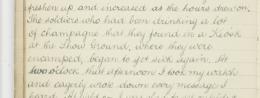 freshen up and increased as the hours drew on.
The soldiers who had been drinking a lot
of champagne that they found in a Kiosk
at the Show Ground, where they were
encamped, began to get sick again. At
two o'clock that afternoon I took my watch
and eagerly wrote down every message I